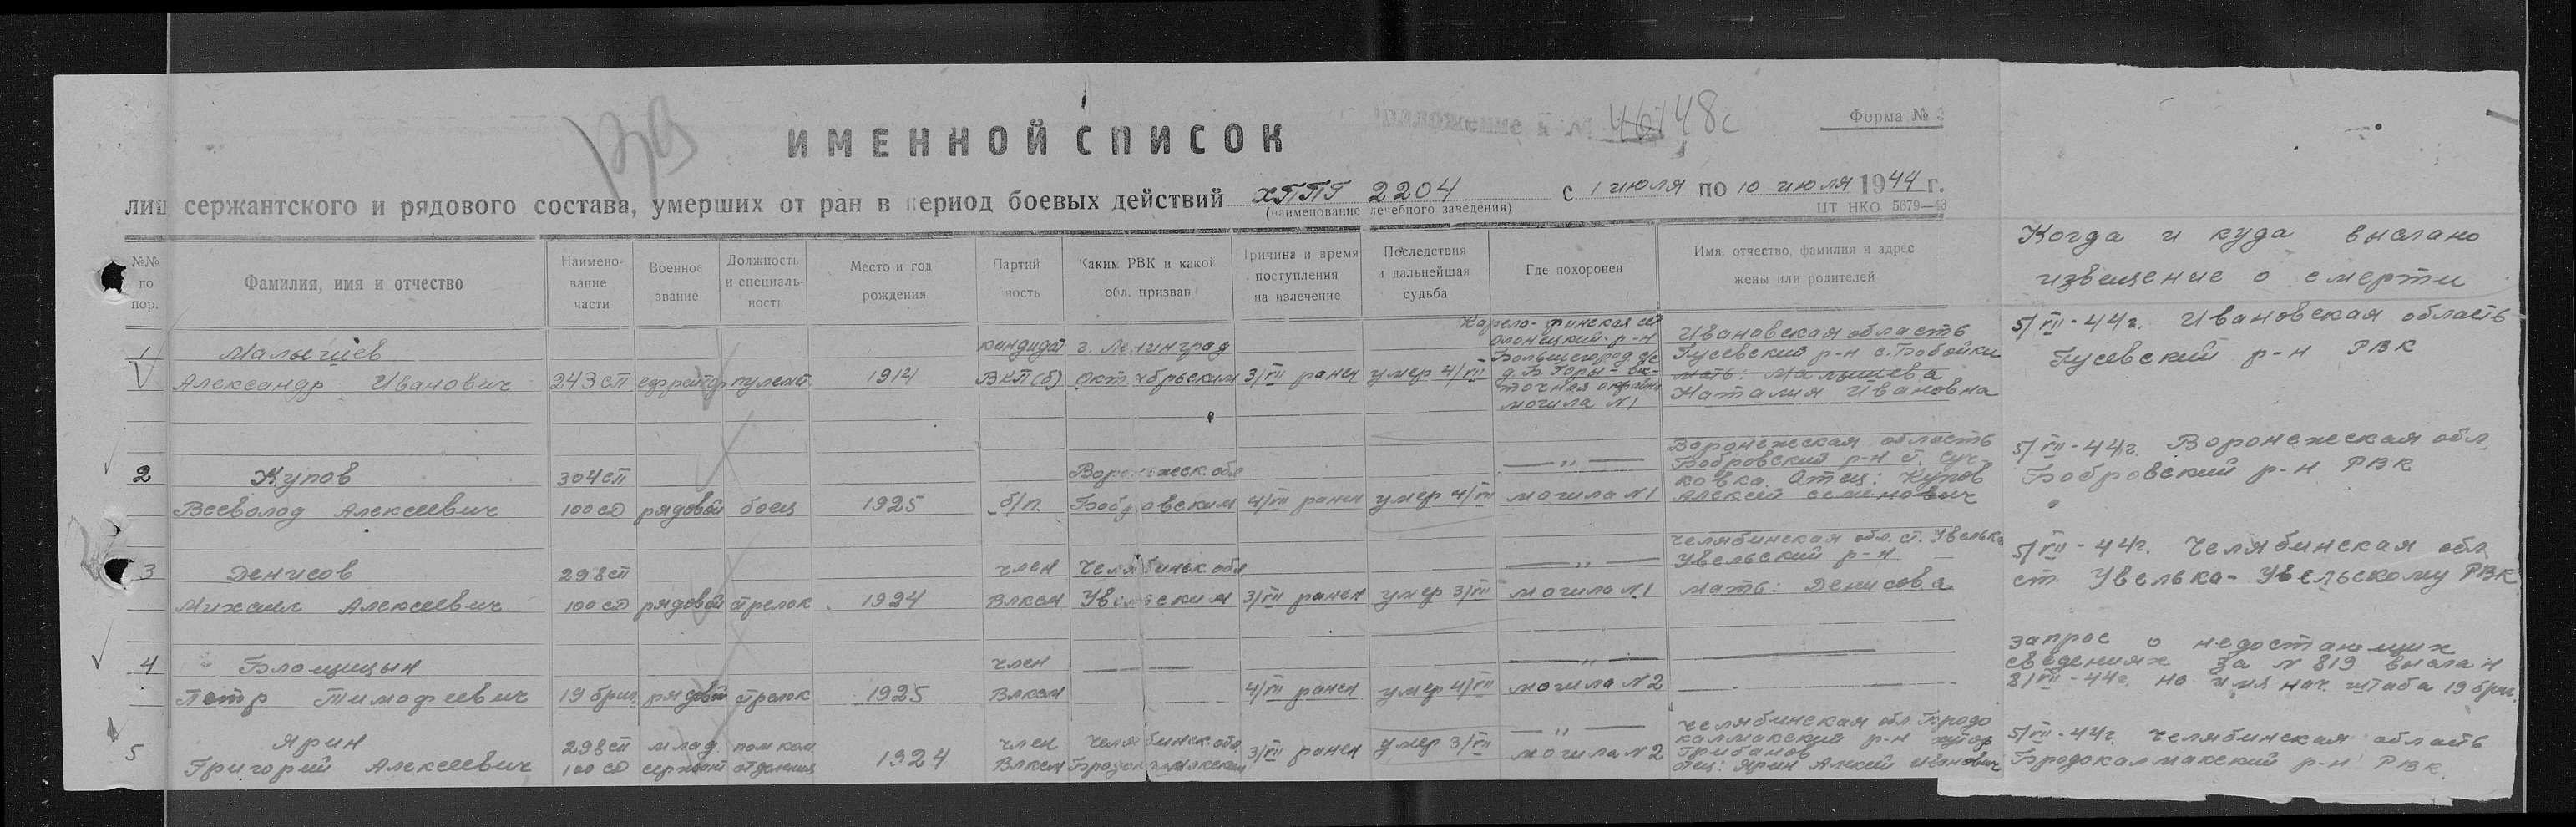 Приложение к № 46148с
Форма № 3
ИМЕННОЙ СПИСОК
лиц сержантского и рядового состава, умерших от ран в период боевых действий ХППГ 2204 с 1 июля по 10 июля 1944 г.
(наименование лечебного заведения)
ЦТ НКО 5679—43
№№ по пор.
Фамилия, имя и отчество
Наимено-
вание
части
Военное
звание
Должность
и специаль-
ность
Место и год
рождения
Партий
ность
Каким РВК и какой
обл. призван
Причина и время
поступления
на излечение
Последствия
и дальнейшая
судьба
Где похоронен
Имя, отчество, фамилия и адрес
жены или родителей
Когда и куда выслано
извещение о смерти
1
Малышев
Александр Иванович
243 сп
ефрейтор
пулемт.
1914
кандидат
ВКП(б)
г. Ленинград
Октябрьским
3/VII ранен
умер 4/VII
Карело-финская сср
Олонецкий р-н
Большегород сс
д. Б Горы - вос-
точная окраина
могила №1
Ивановская область
Гусевский р-н с. Бобойки
мать: Малышева
Наталия Ивановна
5/VII-44г. Ивановская область
Гусевский р-н РВК
2
Купов
Всеволод Алексеевич
304 сп
100 сд
рядовой
боец
1925
б/п.
Воронежск. обл
Бобровским
4/VII ранен
умер 4/VII
— „ —
могила №1
Воронежская область
Бобровский р-н
Отец: Купов
Алексей Семенович
5/VII-44г. Воронежская обл
Бобровский р-н РВК
3
Денисов
Михаил Алексеевич
298 сп
100 сд
рядовой
стрелок
1924
член
Влксм
Челябинск обл
Увельским
3/VII ранен
умер 3/VII
— „ —
могила №1
Челябинская обл. ст. Увелька
Увельский р-н
мать: Денисова
5/VII-44г. Челябинская обл
ст. Увелька - Увельскому РВК
4
Бломщицын
Петр Тимофеевич
19 бриг.
рядовой
стрелок
1925
член
Влксм
— —
4/VII ранен
умер 4/VII
— „ —
могила №2
запрос о недостающих
сведениях за №819 выслан
8/VII-44г. на имя нач. штаба 19 бриг.
5
Ярин
Григорий Алексеевич
298 сп
100 сд
млад.
сержант
пом ком.
отделения
1924
член
Влксм
Челябинск обл.
Бродокалмакским
3/VII ранен
умер 3/VII
— „ —
могила №2
Челябинская обл. Бродо
калмакский р-н хутор
Грибанов
отец: Ярин Алексей Иванович
5/VII-44г. Челябинская область
Бродокалмакский р-н РВК.